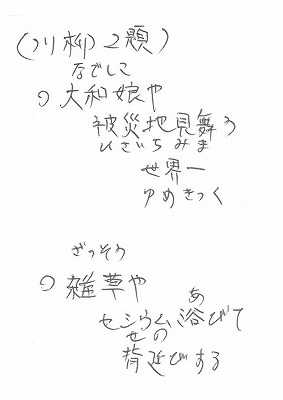 (川柳2題)
なでしこ
○ 大和娘や
被災地見舞う
ひさいちみま
世界一
ゆめきっく
ざっそう
○ 雑草や
あ
セシウム浴びて
せの
背延びする